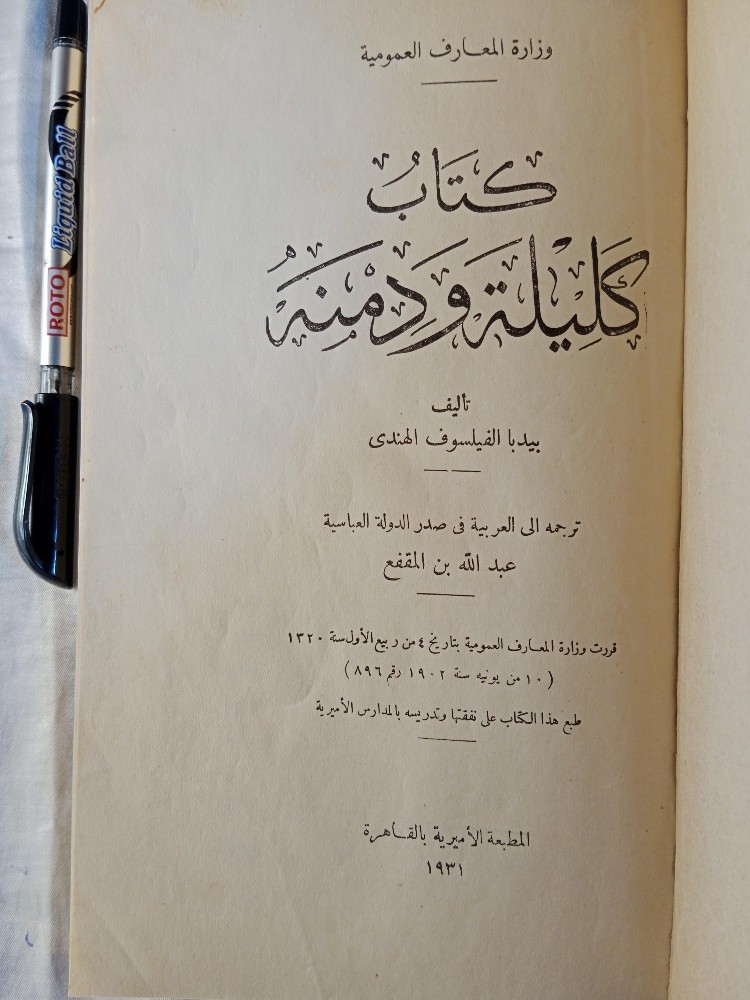 وزارة المعارف العمومية
كتَابُ
كَلِيْلَة وَدِمْنَهُ
تأليف
بيدبا الفيلسوف الهندى
ترجمه الى العربية فى صدر الدولة العباسية
عبد الله بن المقفع
قررت وزارة المعارف العمومية بتاريخ ٤ من ربيع الأول سنة ١٣٢٠
(١٠ من يونيه سنة ١٩٠٢ رقم ٨٩٦)
طبع هذا الكتاب على نفقتها وتدريسه بالمدارس الأميرية
المطبعة الأميرية بالقاهرة
١٩٣١
ROTO
Liquid Ball